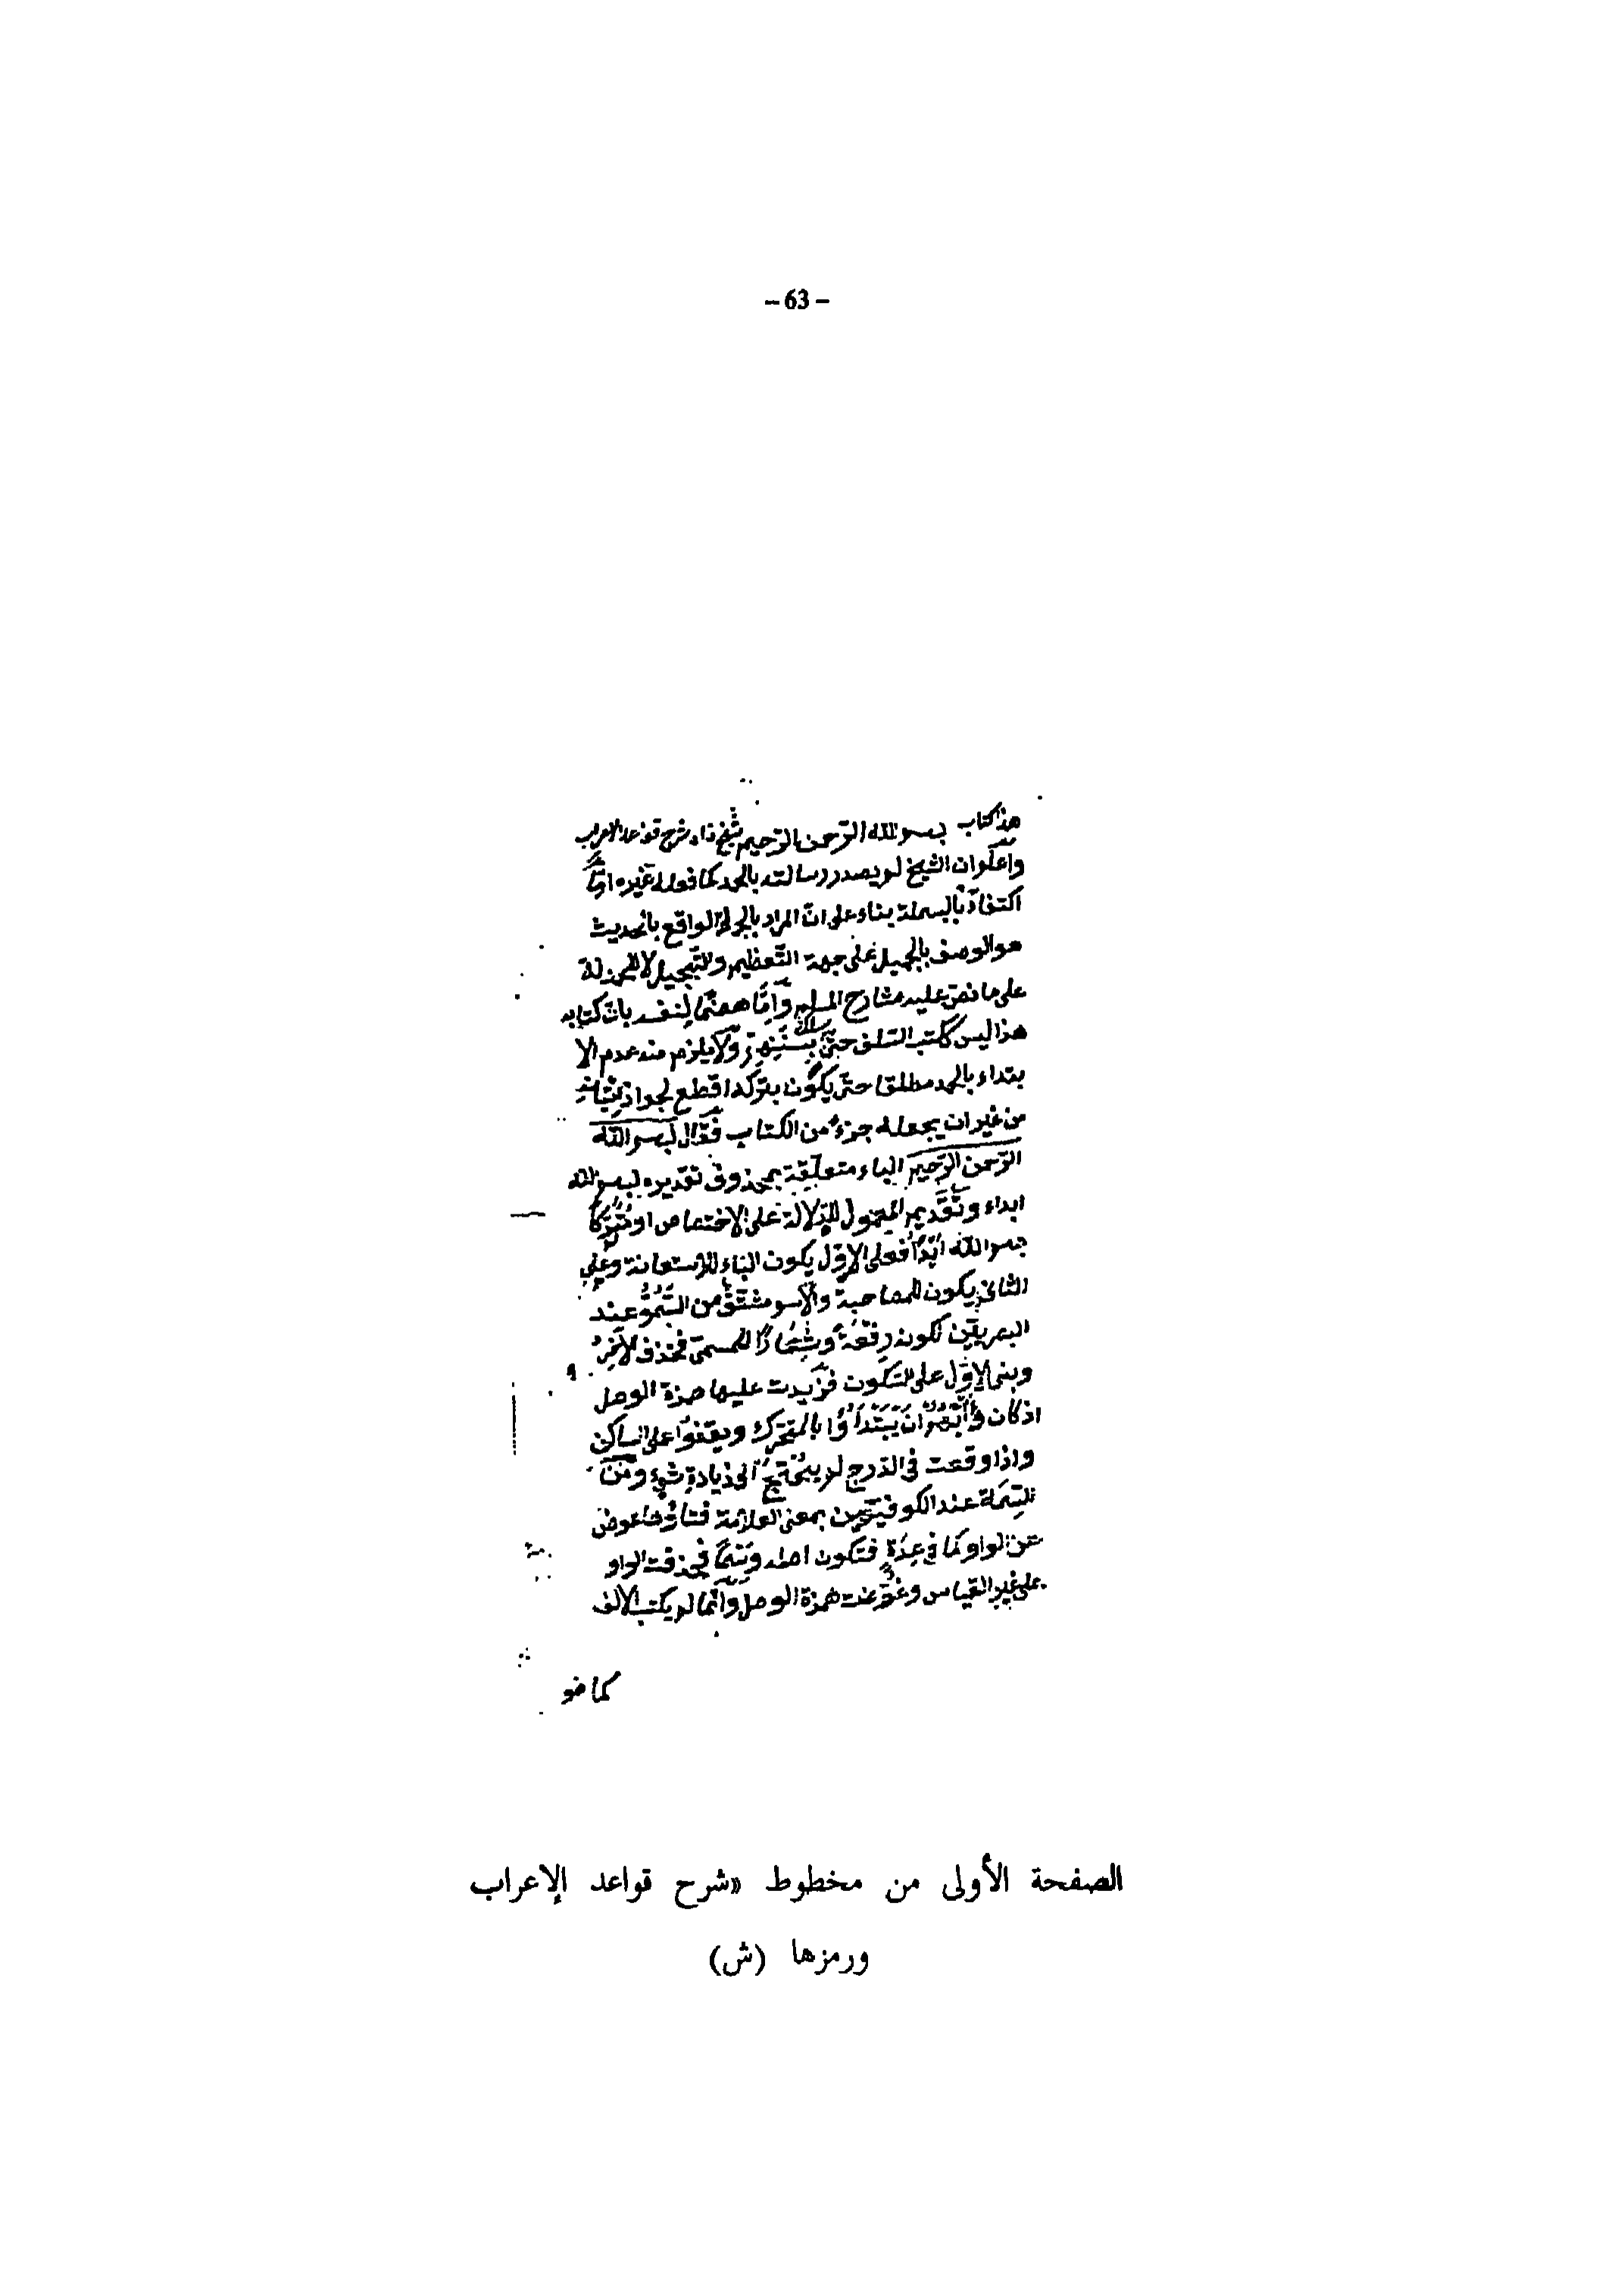 – 63 –
هذا كتاب بسم الله الرحمن الرحيم شيخ زاده شرح قواعد الاعراب
واعلم ان الشيخ لم يصدر رسالته بالحمد كما فعله غيره اما
اكتفاء بالبسملة بناء على ان المراد بالحمد الواقع بالحديث
هو الوصف بالجميل على جهة التعظيم والتبجيل لا الحمدلة
على ما نص عليه مشارح المسلم وَاِمَّا هضما لنفسه بان كتابه
هذا ليس ككتب السلف حتى يسلك بسننهم ولا يلزم منه عدم الا
بتداء بالحمد مطلقا حتى يكون بتركه اقطع لجواز اتيانه
من غير ان يجعله جزء من الكتاب فقال بسم الله
الرحمن الرحيم الباء متعلقة بمحذوف تقديره بسم الله
ابداء وتقديم المعمول للدلالة على الاختصاص او متبركا
بسم الله ابدأ فعلى الاول يكون الباء للاستعانة وعلى
الثاني يكون للمصاحبة والاسم مشتق من السُّمُوِّ عند
البصريين لكونه رفعة وشعارًا للمسمى فحذف الآخر
وبنى الاول على السكون فزيدت عليها همزة الوصل
اذ كان دأبهم ان يبتدأوا بالمتحرك ويقفوا على الساكن
واذا وقعت في الدرج لم يحتج الى زيادة شيء ومن
السِّمَة عند الكوفيين بمعنى العلامة فتاؤها عوض
عن الواو كما في عِدَةٍ فتكون اصله وسما فحذفت الواو
على غير القياس وعوضت همزة الوصل وانما لم يكتب الالف
كما هو
الصفحة الأولى من مخطوط «شرح قواعد الإعراب
ورمزها (ش)